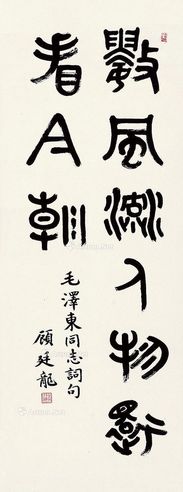 數風流人物還
看今朝
毛澤東同志詞句
顧廷龍